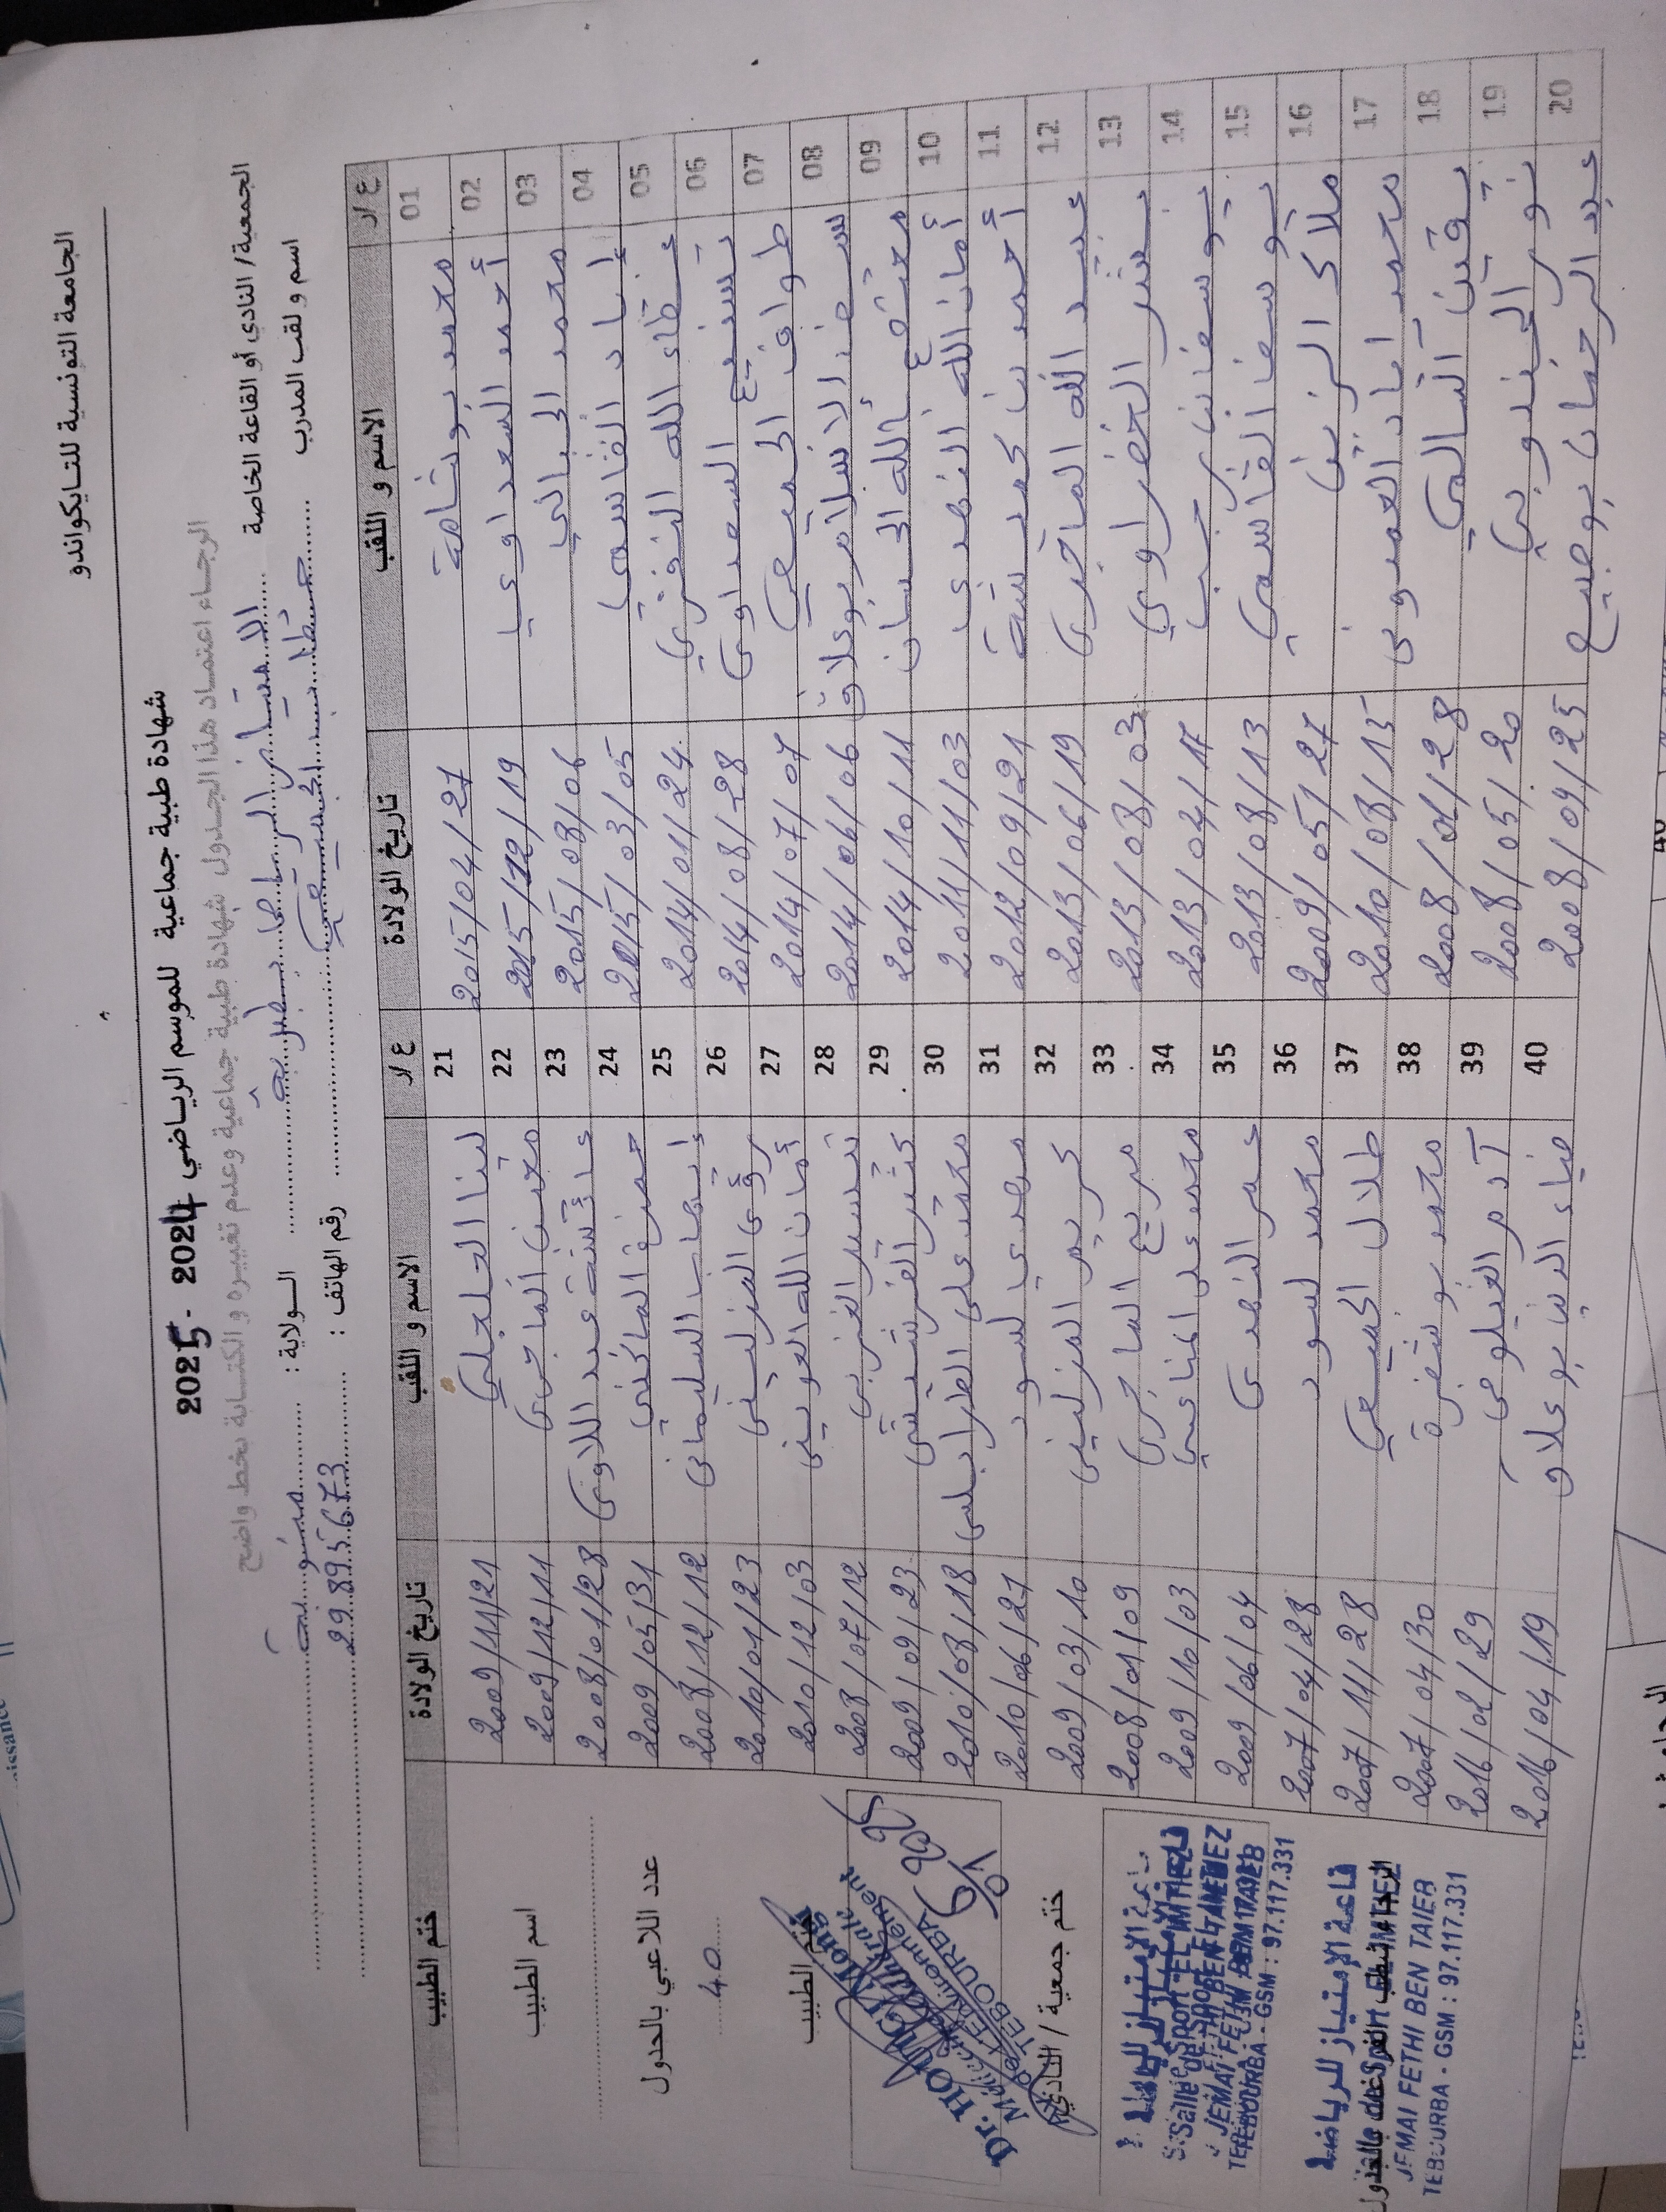 الجامعة التونسية للتايكواندو
شهادة طبية جماعية للموسم الرياضي 2024 - 2025
الرجاء اعتماد هذا الجدول شهادة طبية جماعية وعدم تغييره و الكتابة بخط واضح
الجمعية/ النادي أو القاعة الخاصة الامتياز الرياضية بطبربة الولاية : منوبة
اسم و لقب المدرب رقم الهاتف : 29.895.673
ع/ر الاسم و اللقب تاريخ الولادة ع/ر الاسم و اللقب تاريخ الولادة ختم الطبيب
01 محمد بوشامة 2015/04/27 21 لينا الجلجلي 2009/11/21
02 أحمد السعداوي 2015/12/19 22 الماجري 2009/12/11
03 محمد الجبالي 2015/08/06 23 عائشة عبد اللاوي 2008/01/28
04 إياد القاسمي 2015/03/05 24 حمزة الماكني 2009/05/31
05 عطاء الله النفزي 2014/01/24 25 إيهاب السليماني 2008/12/12
06 تسنيم السعداوي 2014/08/28 26 رؤى المزليني 2010/01/23
07 طواف الجميعي 2014/07/07 27 أمان الله العويني 2010/12/03
08 سيف الاسلام بوعلاق 2014/06/06 28 تيسير الغربي 2008/07/12
09 معتصم بالله الحسان 2014/10/11 29 كثير الفرشيشي 2009/09/23
10 أمان الله النهدي 2011/11/03 30 محمد علي الطرابلسي 2010/08/18
11 أحمد بن حميدة 2012/09/21 31 مهدي لسود 2010/06/21
12 عبد الله الماجري 2013/06/19 32 كريم المزليني 2009/03/10
13 بشر الخضراوي 2013/08/03 33 مريم الماجري 2008/01/09
14 يوسف بن رجب 2013/04/17 34 محمد علي المناعي 2009/10/03
15 يوسف القاسمي 2013/08/13 35 عمر النهدي 2009/06/04
16 ملاك الزين 2009/05/27 36 محمد لسود 2007/04/28
17 محمد اياد العمدوني 2010/08/15 37 طلال الجميعي 2007/11/28
18 يقين السالمي 2008/01/28 38 محمد بوشفرة 2007/04/30
19 نور الجندوبي 2008/05/20 39 آدم الغيلوفي 2016/02/29
20 عبد الرحمان بوصبيع 2008/09/25 40 ضياء الدين بوعلاق 2016/04/19
اسم الطبيب
عدد اللاعبي بالجدول
40
ختم الطبيب
TEBOURBA
ختم جمعية / النادي
قاعة الامتياز للرياضة
Salle de Sport EL IMTIEZ
JEMAI FETHI BEN TAIEB
TEBOURBA - GSM : 97.117.331
قاعة الامتياز للرياضة
JEMAI FETHI BEN TAIEB
TEBOURBA - GSM : 97.117.331